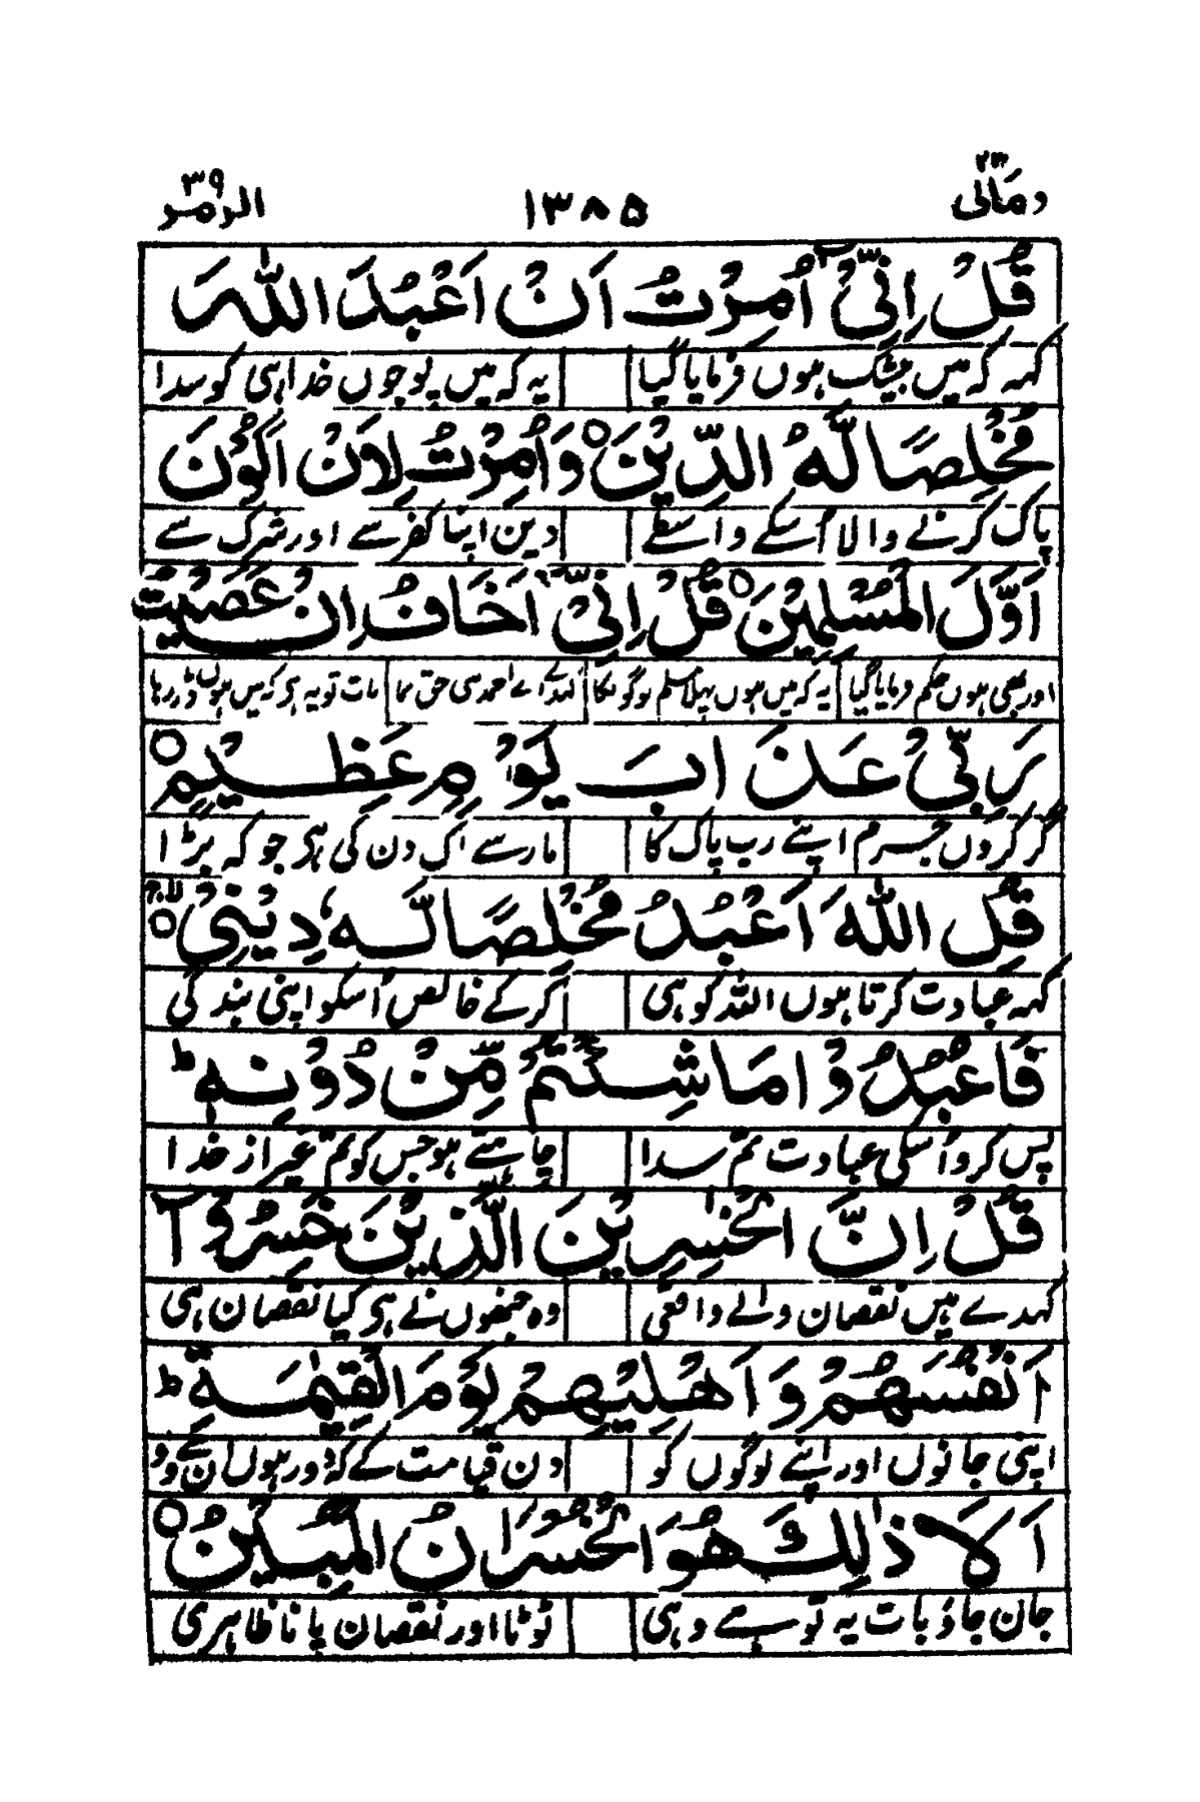 ومالی ۲۳ ۱۳۸۵ الزمر ۳۹
قُلْ اِنِّیْٓ اُمِرْتُ اَنْ اَعْبُدَ اللّٰهَ
کہہ کہ میں بیشک ہوں فرمایا گیا یہ کہ میں پوجوں خدا ہی کو سدا
مُخْلِصًا لَّهُ الدِّیْنَ ۝ وَاُمِرْتُ لِاَنْ اَکُوْنَ
پاک کرنے والا اُسکے واسطے دین اپنا کفر سے اور شرک سے
اَوَّلَ الْمُسْلِمِیْنَ ۝ قُلْ اِنِّیْٓ اَخَافُ اِنْ عَصَیْتُ
اور بھی ہوں حکم فرمایا گیا یہ کہ میں ہوں پہلا مسلم لوگوں کا کہدے اے احمد سی حق نما بات تو یہ ہی کہ میں ہوں ڈر رہا
رَبِّیْ عَذَابَ یَوْمٍ عَظِیْمٍ ۝
گر کروں جرم اپنے رب پاک کا مار سے اک دن کی ہی جو کہ بڑا
قُلِ اللّٰهَ اَعْبُدُ مُخْلِصًا لَّهٗ دِیْنِیْ ۝
کہہ عبادت کرتا ہوں اللہ کو ہی کرکے خالص اُسکو اپنی بندگی
فَاعْبُدُوْا مَا شِئْتُمْ مِّنْ دُوْنِهٖ ط
پس کرو اُسکی عبادت تم سدا چاہتے ہو جس کو تم غیر از خدا
قُلْ اِنَّ الْخٰسِرِیْنَ الَّذِیْنَ خَسِرُوْٓا
کہدے ہیں نقصان والے واقعی وہ جنھوں نے ہی کیا نقصان ہی
اَنْفُسَهُمْ وَاَهْلِیْهِمْ یَوْمَ الْقِیٰمَةِ ط
اپنی جانوں اور اپنے لوگوں کو دن قیامت کے
اَلَا ذٰلِكَ هُوَ الْخُسْرَانُ الْمُبِیْنُ ۝
جان جاؤ بات یہ تو ہے وہی ٹوٹا اور نقصان پانا ظاہری